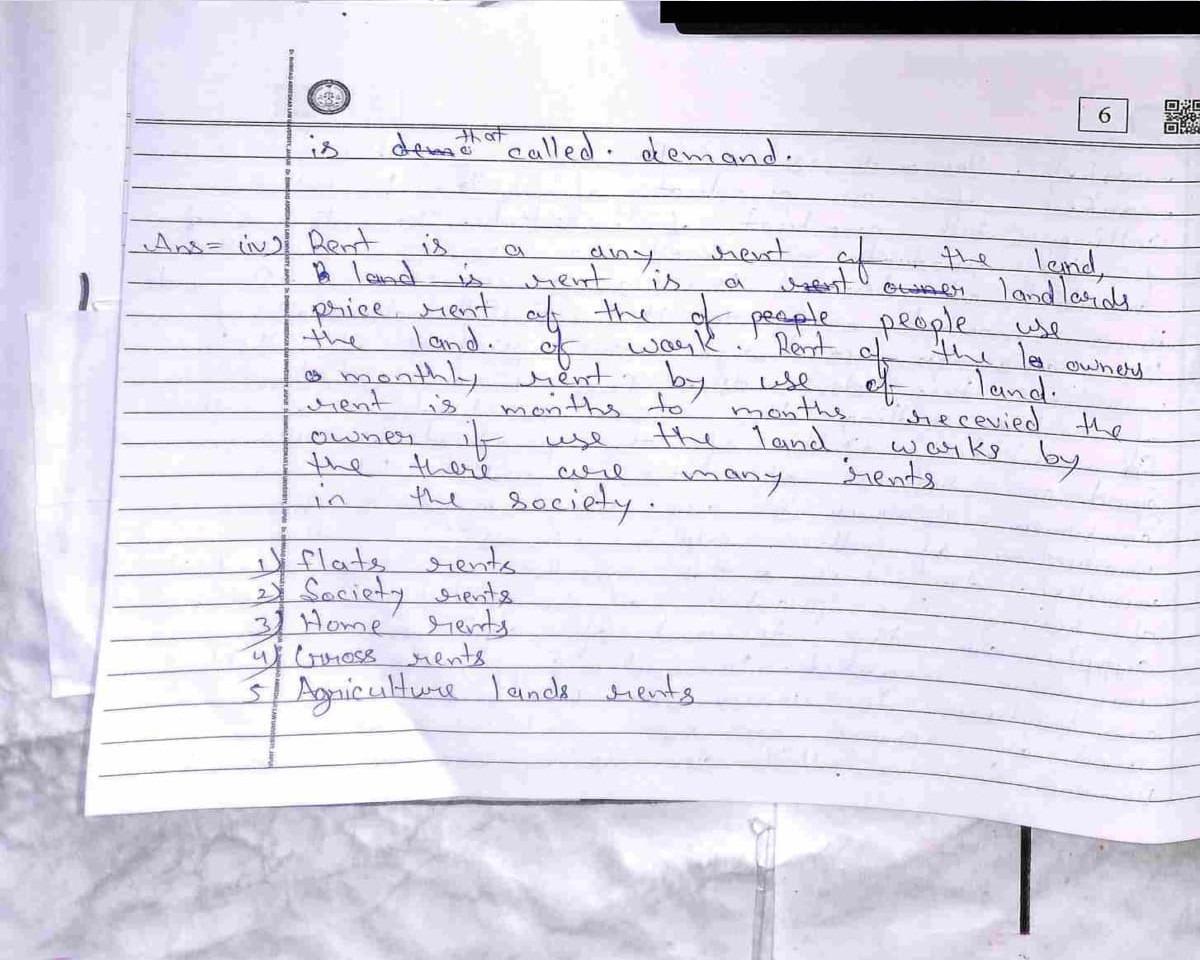 6
is that called. demand.
Ans = (iv) Rent is a any rent of the land,
land is rent is a rent owner landlards
price rent of the of people people use
the land. of wark. Rent of the owners
monthly rent by use of land.
rent is months to months recevied the
owner if use the land works by
the there are many rents
in the society.
1) flats rents
2) Society rents
3) Home rents
4) Gross rents
5 Agriculture lands rents